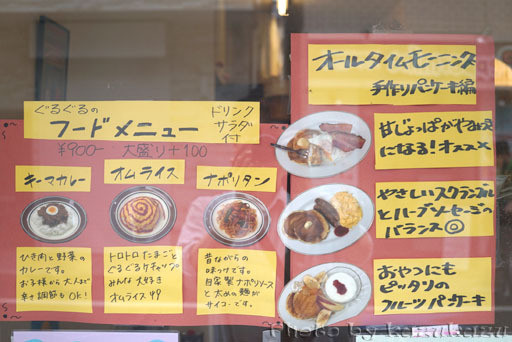 ぐるぐるの
フードメニュー
ドリンク
サラダ
付
¥900- 大盛り+100
キーマカレー
オムライス
ナポリタン
ひき肉と野菜の
カレーです。
お子様から大人まで
辛さ調節もOK!
トロトロたまごと
ぐるぐるケチャップ
みんな大好き
オムライス
昔ながらの
味つけです。
自家製ナポリソース
と太めの麺が
サイコーです。
オールタイムモーニング
手作りパンケーキ編
甘じょっぱがやみつき
になる!オススメ
やさしいスクランブル
とハーブソーセージの
バランス◎
おやつにも
ピッタリの
フルーツパンケーキ
Photo by kazukazu